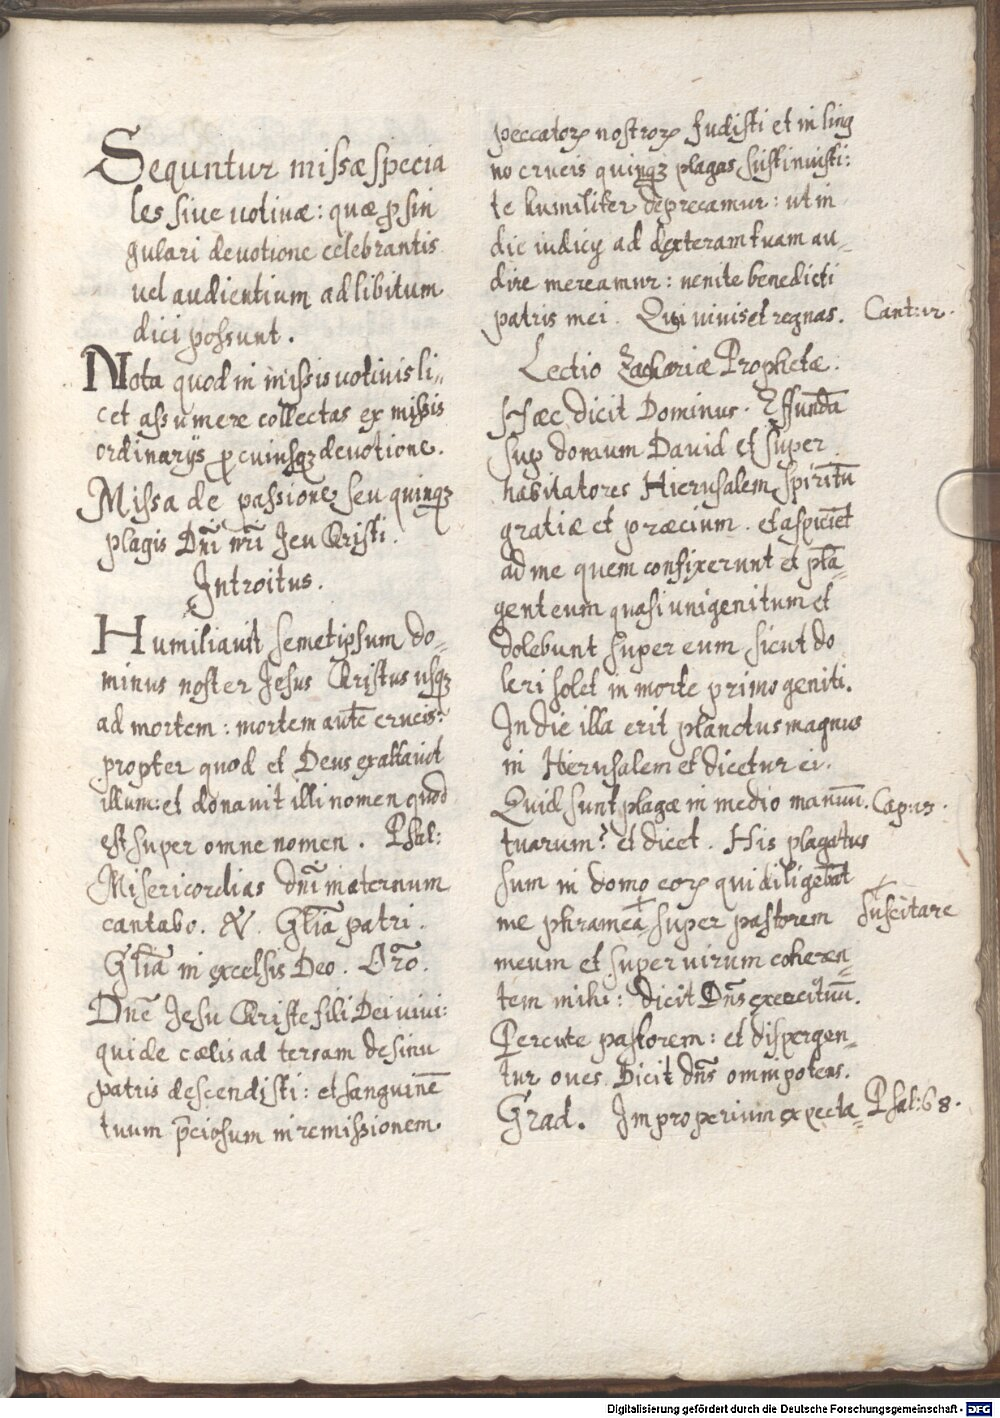 Sequntur missæ specia
les siue uotiuæ: quæ ꝓ sin
gulari deuotione celebrantis
uel audientium ad libitum
dici possunt.
Nota quod in missis uotiuis li„
cet assumere collectas ex missis
ordinarijs ꝓ cuiusqꝫ deuotione.
Missa de passione seu quinqꝫ
plagis Dñi nr̃i Jesu Christi.
Introitus.
Humiliauit semetipsum do„
minus noster Jesus Christus usqꝫ
ad mortem: mortem autē crucis:
propter quod et Deus exaltauit
illum: et donauit illi nomen quod
est super omne nomen. Psal:
Misericordias dñi in æternum
cantabo. V. Gl̃ia patri.
Gl̃ia in excelsis Deo. Or̃o.
Dñe Jesu Christe fili Dei uiui:
qui de cælis ad terram de sinu
patris descendisti: et sanguinē
tuum p̄ciosum in remissionem.
peccatoꝝ nostroꝝ fudisti et in ling
no crucis quinqꝫ plagas sustinuisti:
te humiliter deprecamur: ut in
die iudicij ad dexteram tuam au„
dire mereamur: uenite benedicti
patris mei. Qui uiuis et regnas. Cant:12.
Lectio Zachariæ Prophetæ.
Hæc dicit Dominus. Effundā
sup domum Dauid et super
habitatores Hierusalem spiritū
gratiæ et præcium. et aspiciēt
ad me quem confixerunt et plā„
gent eum quasi unigenitum et
dolebunt super eum sicut do
leri solet in morte primogeniti.
In die illa erit planctus magnus
in Hierusalem et dicetur ei.
Quid sunt plagæ in medio manuū. Cap:13.
tuarum? et dicet. His plagatus
sum in domo eoꝝ qui diligebāt
me + phrameā super pastorem + suscitare
meum et super uirum coheren„
tem mihi: dicit Dñs exercituū.
Percute pastorem: et dispergen„
tur oues. Dicit dñs omnipotens.
Grad. Improperium expecta„ Psal:68.
Digitalisierung gefördert durch die Deutsche Forschungsgemeinschaft - DFG